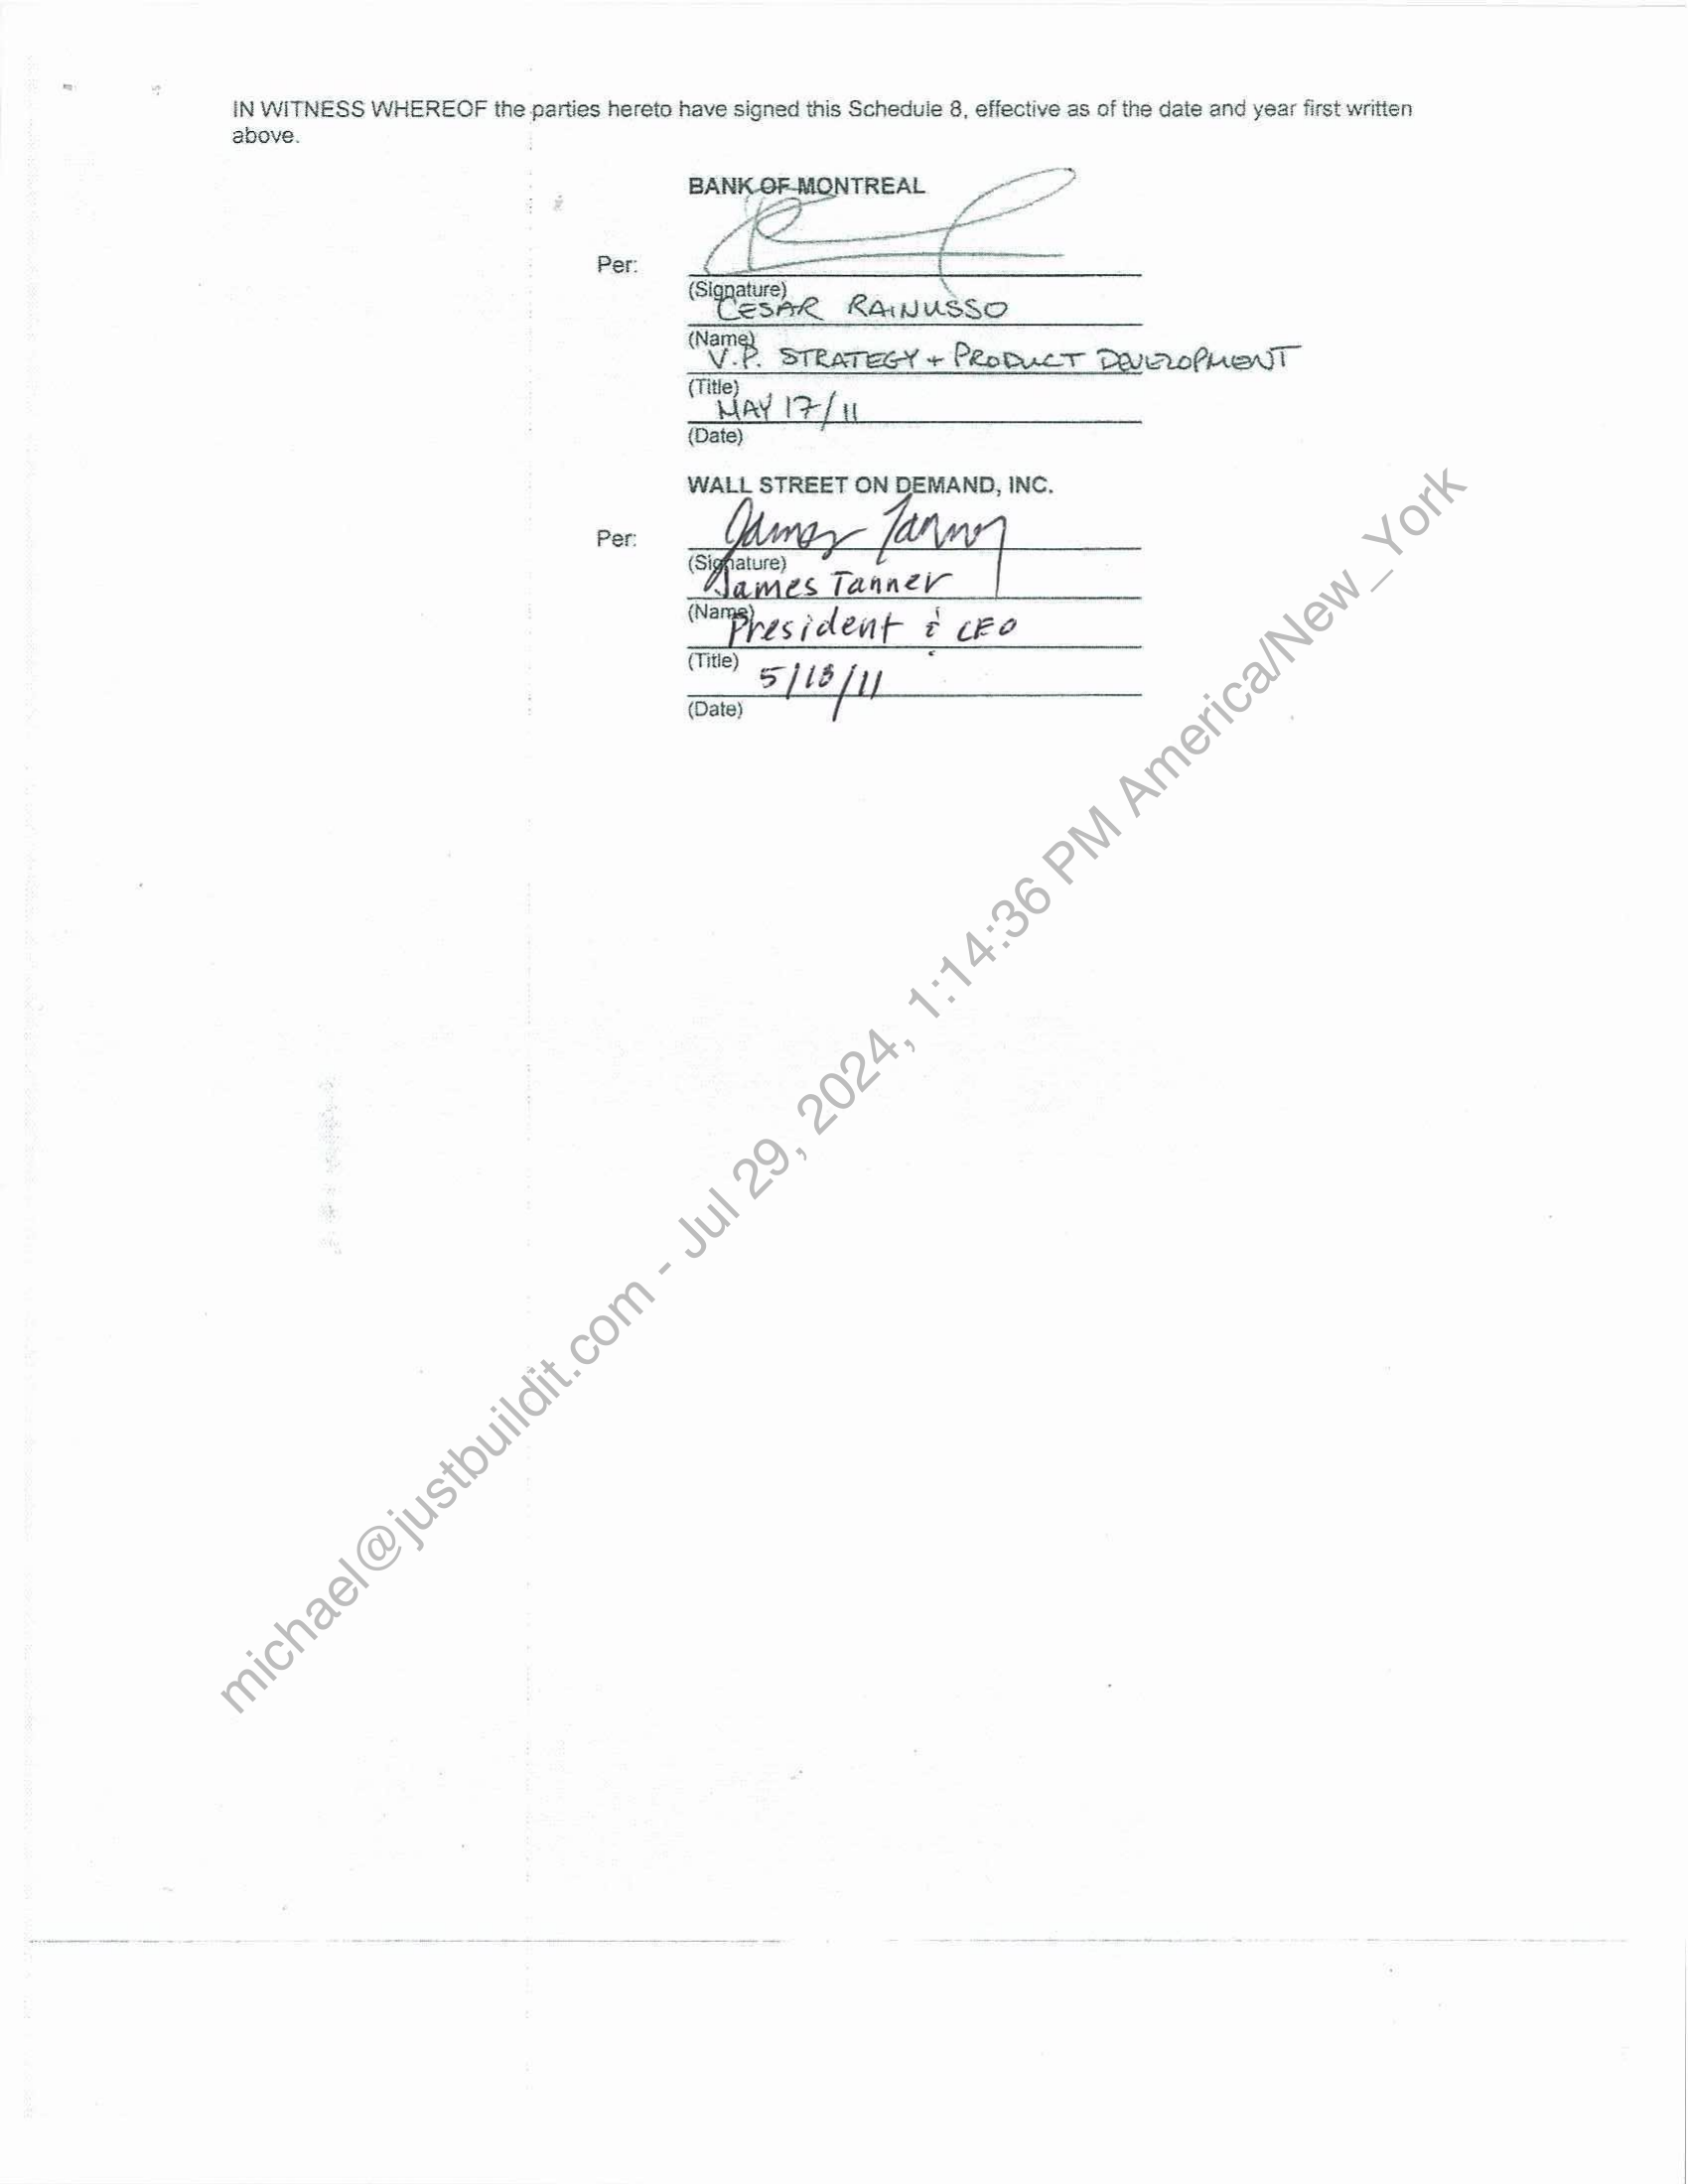 IN WITNESS WHEREOF the parties hereto have signed this Schedule 8, effective as of the date and year first written
above.
BANK OF MONTREAL
Per:
(Signature)
CESAR RAINUSSO
(Name)
V.P. STRATEGY + PRODUCT DEVELOPMENT
(Title)
MAY 17/11
(Date)
WALL STREET ON DEMAND, INC.
Per: James Tanner
(Signature)
James Tanner
(Name)
President & CEO
(Title)
5/18/11
(Date)
michael@justbuildit.com - Jul 29, 2024, 1:14:36 PM America/New_York